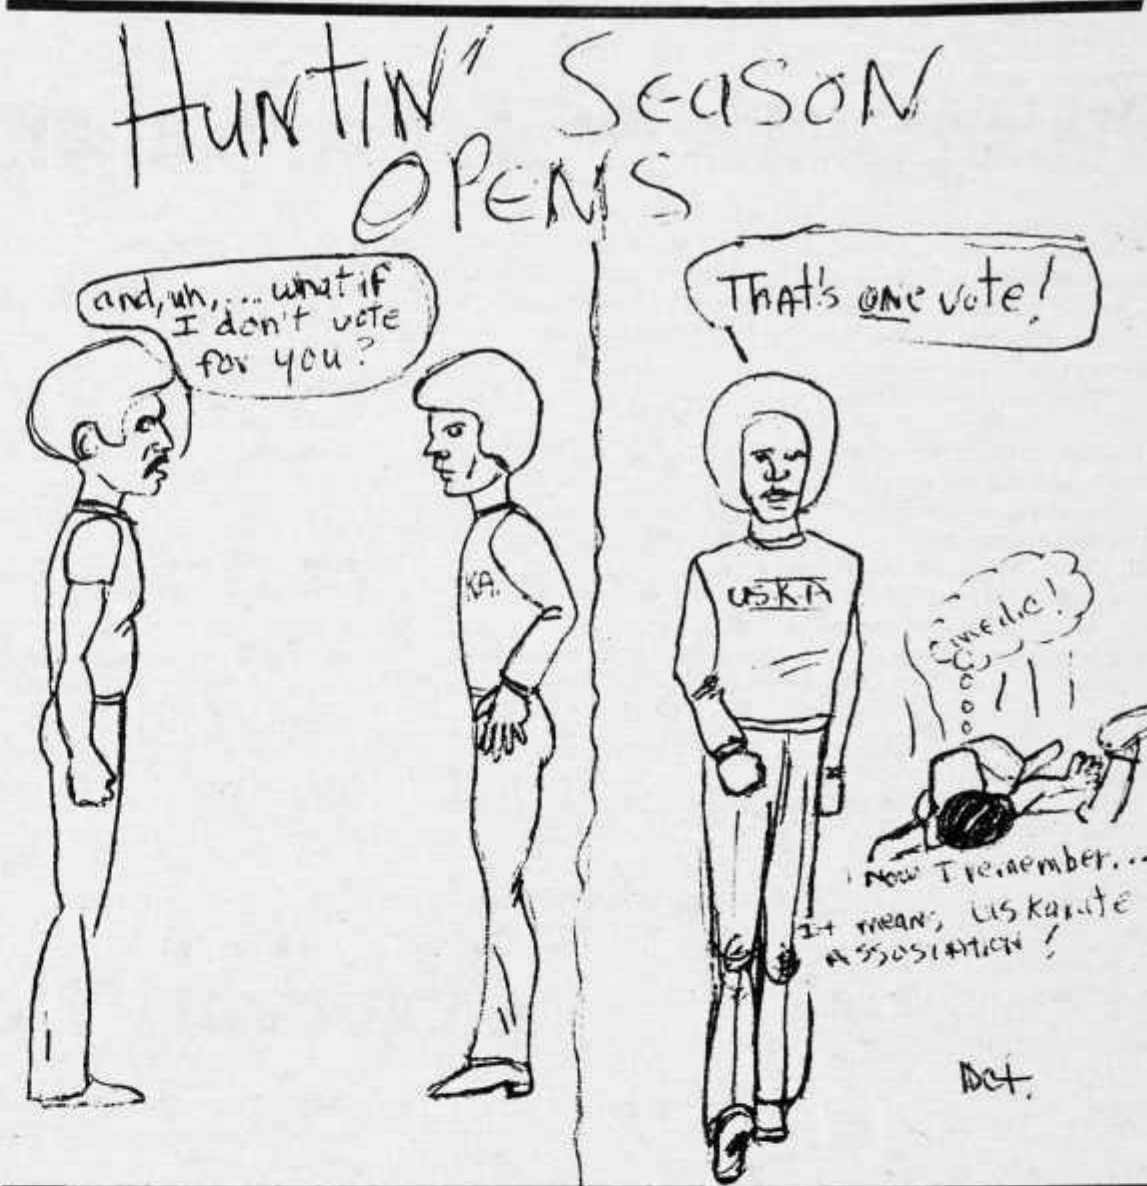 HuntiN' SeasoN
OPENS
and, uh, ... what if
I don't vote
for you?
KA.
That's ONE vote!
USKA
medic!
Now I remember...
It means, US Karate
ASSOSIATION!